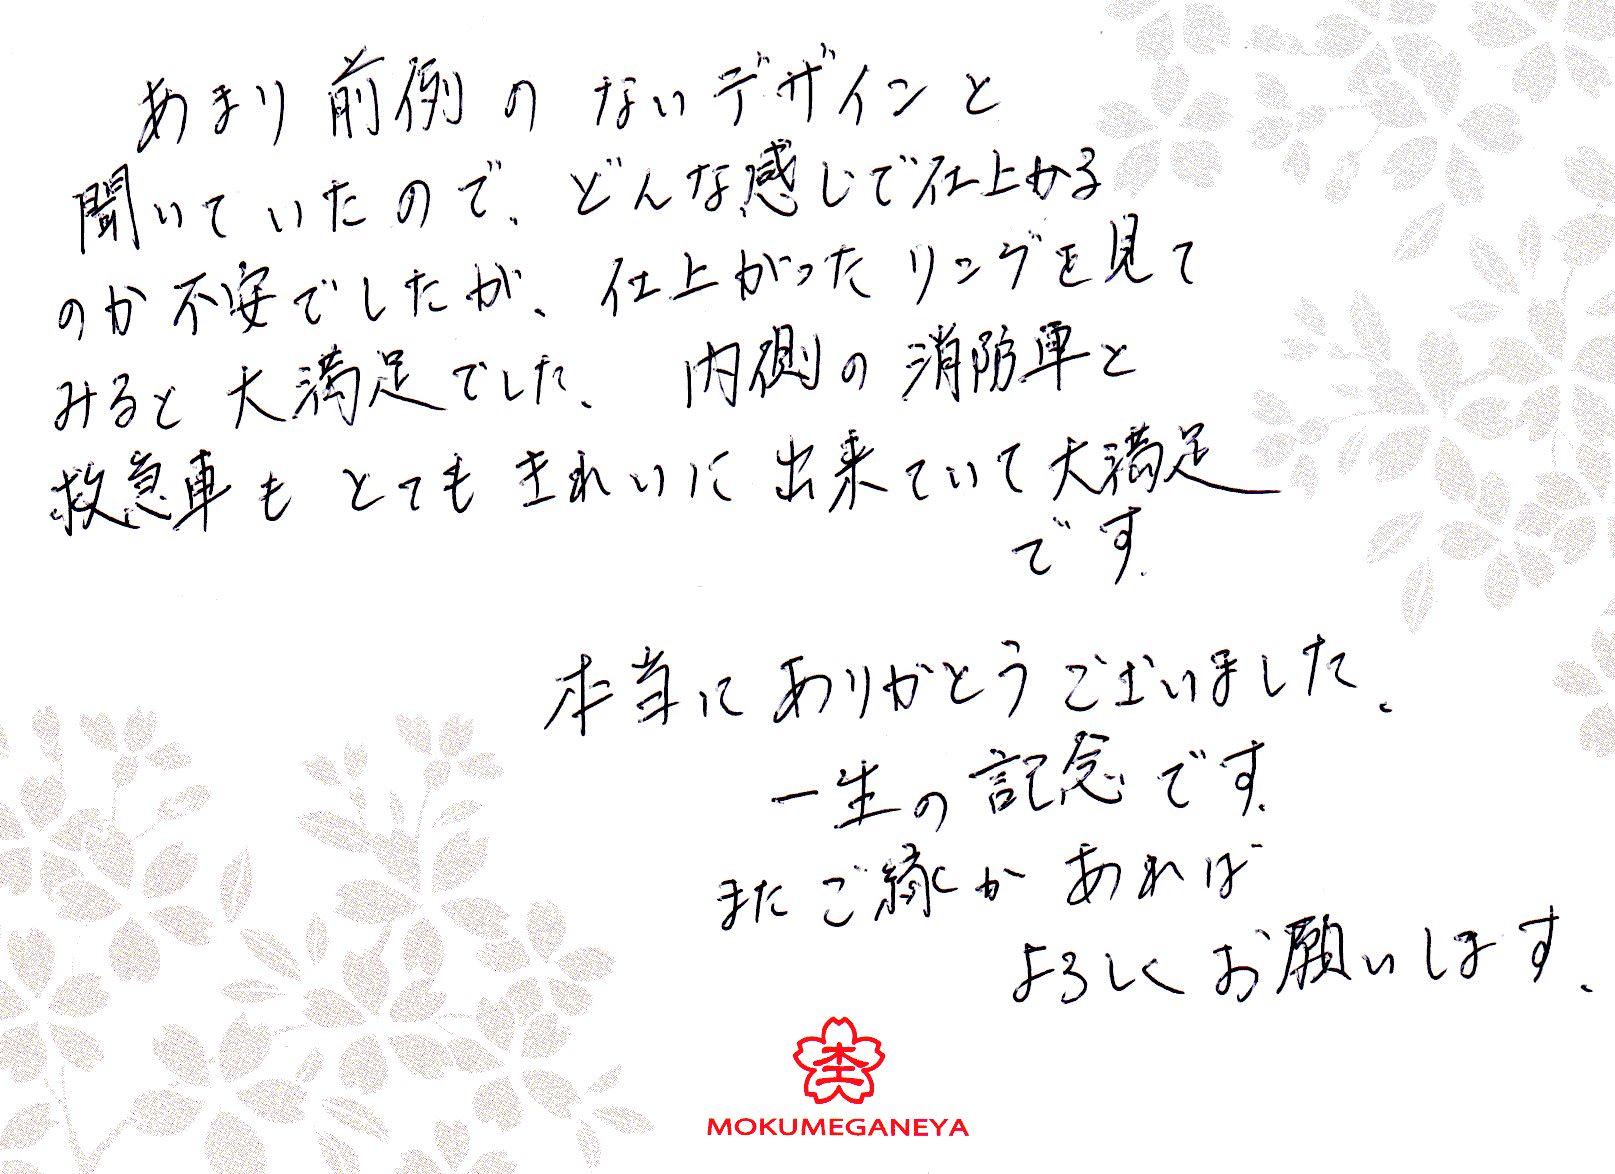 あまり前例のないデザインと
聞いていたので、どんな感じで仕上がる
のか不安でしたが、仕上がったリングを見て
みると大満足でした。内側の消防車と
救急車もとてもきれいに出来ていて大満足
です。
本当にありがとうございました。
一生の記念です。
またご縁があれば
よろしくお願いします。
MOKUMEGANEYA